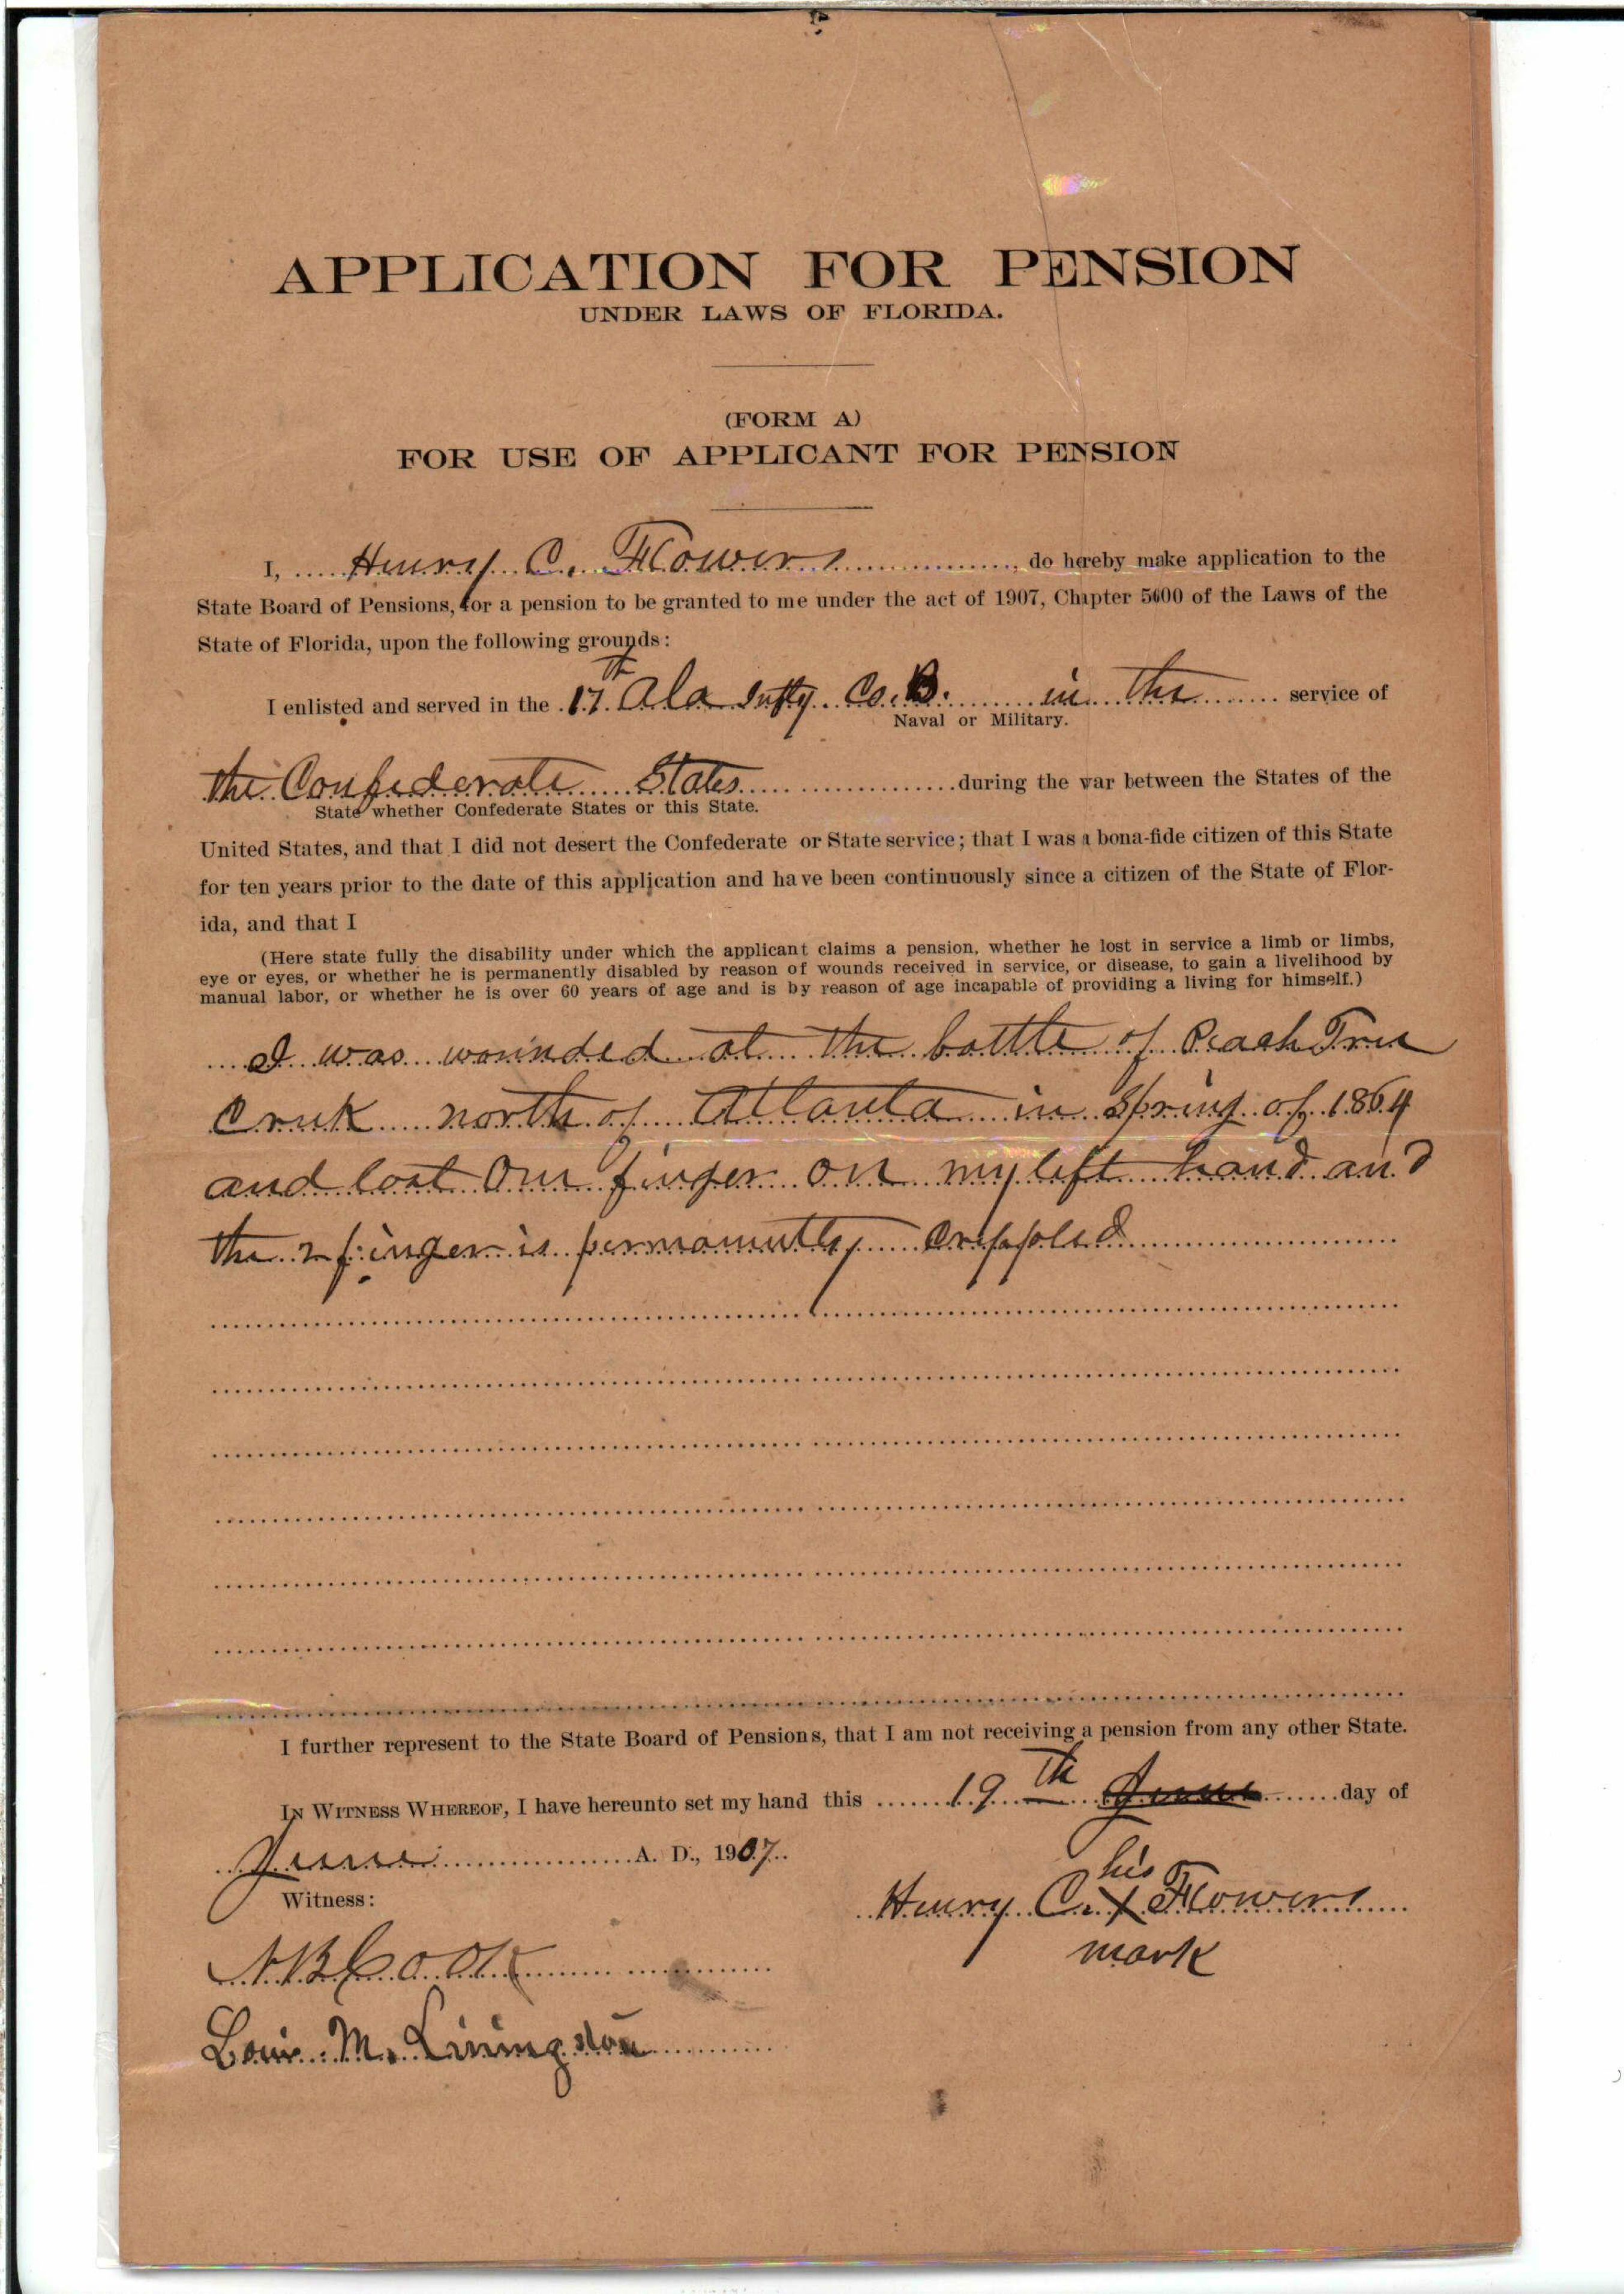 APPLICATION FOR PENSION
UNDER LAWS OF FLORIDA.
(FORM A)
FOR USE OF APPLICANT FOR PENSION
I, Henry C. Flowers, do hereby make application to the
State Board of Pensions, for a pension to be granted to me under the act of 1907, Chapter 5600 of the Laws of the
State of Florida, upon the following grounds:
I enlisted and served in the 17th Ala Infty Co. B. in the service of
Naval or Military.
the Confederate States during the war between the States of the
State whether Confederate States or this State.
United States, and that I did not desert the Confederate or State service; that I was a bona-fide citizen of this State
for ten years prior to the date of this application and have been continuously since a citizen of the State of Flor-
ida, and that I
(Here state fully the disability under which the applicant claims a pension, whether he lost in service a limb or limbs,
eye or eyes, or whether he is permanently disabled by reason of wounds received in service, or disease, to gain a livelihood by
manual labor, or whether he is over 60 years of age and is by reason of age incapable of providing a living for himself.)
I was wounded at the battle of Peach Tree
Creek north of Atlanta in Spring of 1864
and lost One finger on my left hand and
the 2 finger is permanently crippled
I further represent to the State Board of Pensions, that I am not receiving a pension from any other State.
IN WITNESS WHEREOF, I have hereunto set my hand this 19th June day of
June A. D., 1907.
Witness:
his
Henry C. X Flowers
mark
N B Cook
Louis M. Livingston